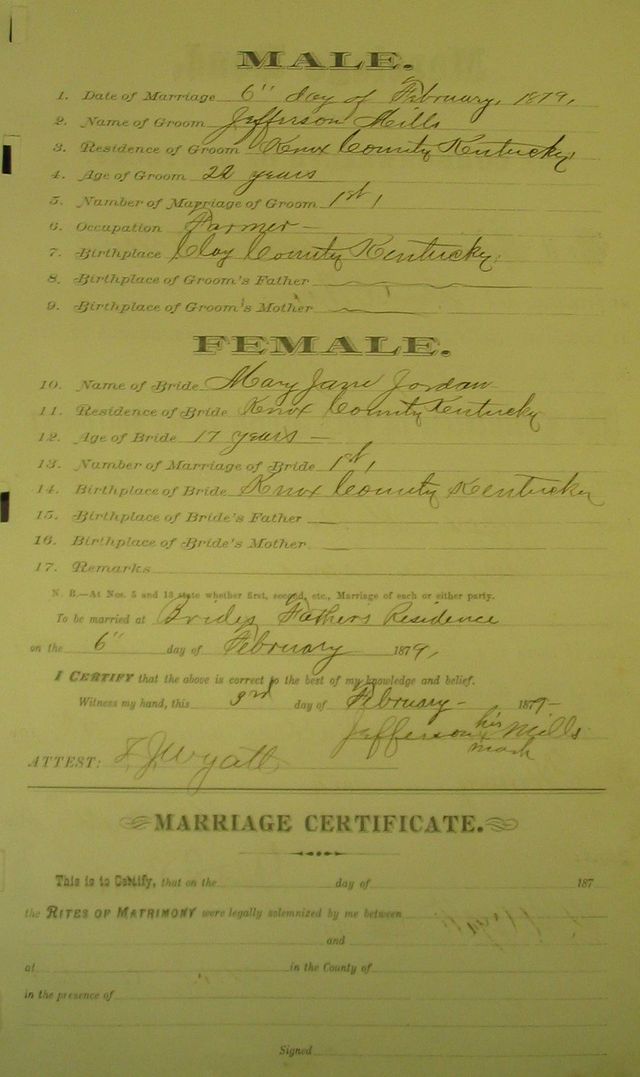 MALE.
1. Date of Marriage 6" day of February, 1879,
2. Name of Groom Jefferson Mills
3. Residence of Groom Knox County Kentucky
4. Age of Groom 22 years
5. Number of Marriage of Groom 1st,
6. Occupation Farmer
7. Birthplace Clay County Kentucky.
8. Birthplace of Groom's Father
9. Birthplace of Groom's Mother
FEMALE.
10. Name of Bride Mary Jane Jordan
11. Residence of Bride Knox County Kentucky
12. Age of Bride 17 years
13. Number of Marriage of Bride 1st,
14. Birthplace of Bride Knox County Kentucky
15. Birthplace of Bride's Father
16. Birthplace of Bride's Mother
17. Remarks
N. B.—At Nos. 5 and 13 state whether first, second, etc., Marriage of each or either party.
To be married at Brides Fathers Residence
on the 6" day of February 1879,
I CERTIFY that the above is correct to the best of my knowledge and belief.
Witness my hand, this 3rd day of February 1879
Jefferson his x mark Mills
ATTEST: J. J. Wyatt
MARRIAGE CERTIFICATE.
This is to Certify, that on the day of 187
the RITES OF MATRIMONY were legally solemnized by me between
and
at in the County of
in the presence of
Signed